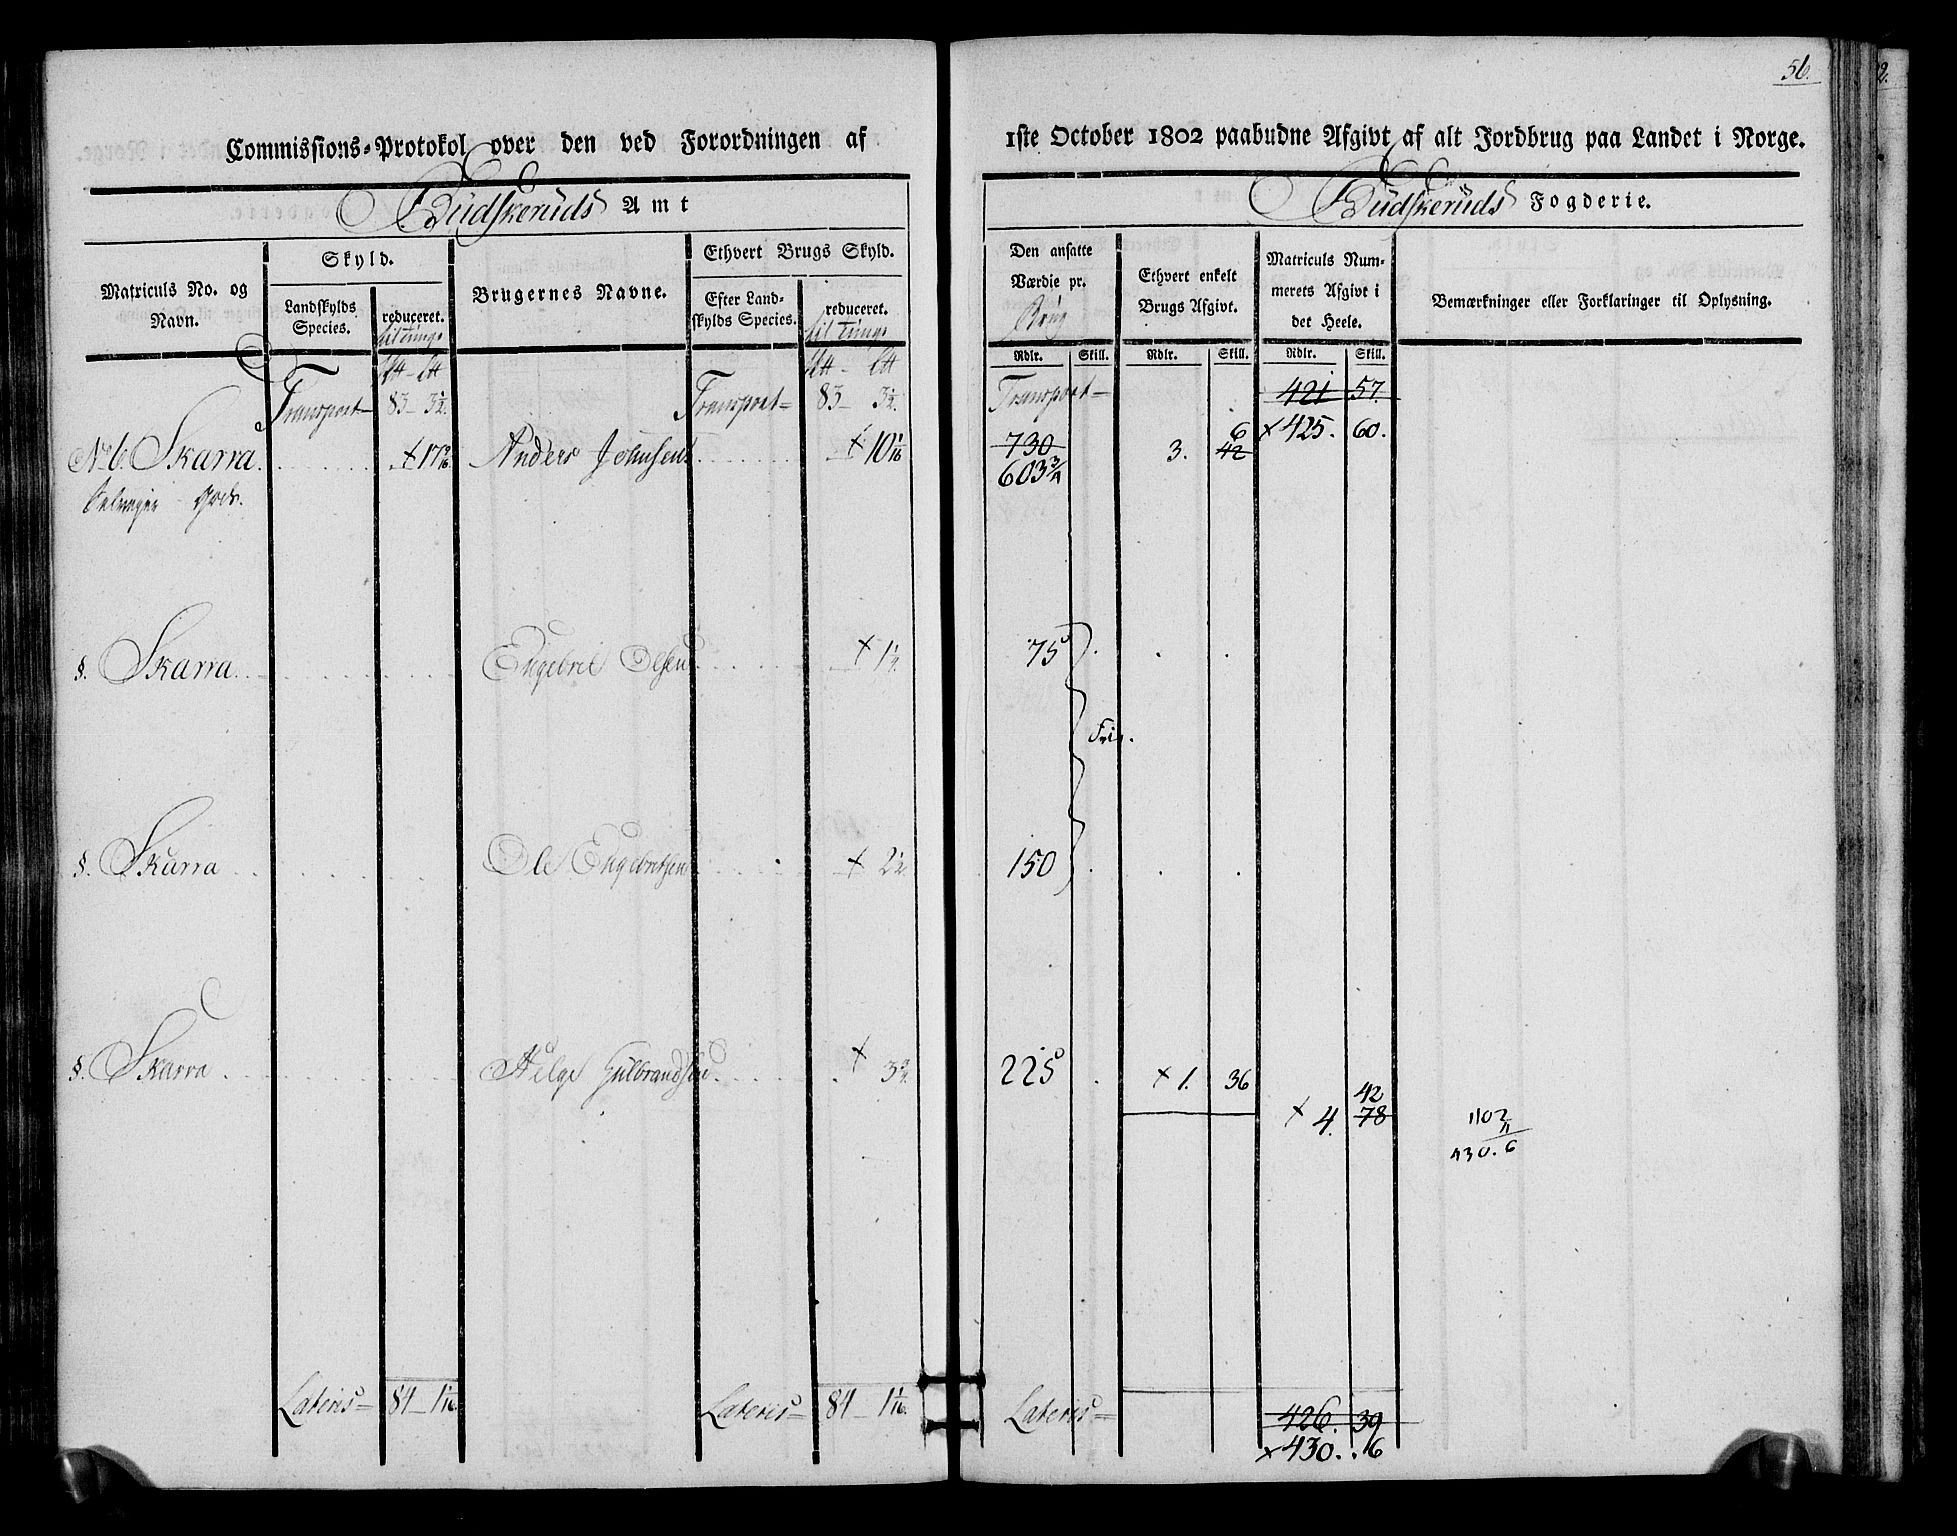 56.
Commissions-Protokol over den ved Forordningen af 1ste October 1802 paabudne Afgivt af alt Jordbrug paa Landet i Norge.
Budskeruds Amt
Budskeruds Fogderie.
Matriculs No. og Navn.
Skyld.
Landskylds Species.
reduceret.
til Tunge
Brugernes Navne.
Ethvert Brugs Skyld.
Efter Landskylds Species.
reduceret.
til Tunge
Den ansatte Værdie pr.
Brug
Ethvert enkelt Brugs Afgivt.
Matriculs Nummerets Afgivt i det Heele.
Bemærkninger eller Forklaringer til Oplysning.
Rdlr. Skill. Rdlr. Skill. Rdlr. Skill.
Transport 83 3½. Transport 83 3½. Transport 421 57.
× 425. 60.
No 6. Skarra. × 17 9/16 Anders Johnsen × 10 1/16 730 3. 42 6
603 3/4
Selveyer Gods.
§. Skarra Engebret Olsen × 1¼. 75
Frie.
§. Skarra Ole Engebretsen × 2½ 150
§. Skarra Helge Gulbrandsen × 3¾. 225 × 1. 36
× 4. 78 42
1102
4
430. 6
Lateris 84 1 1/16. Lateris 84 1 1/16. Lateris 426. 39
× 430. 6